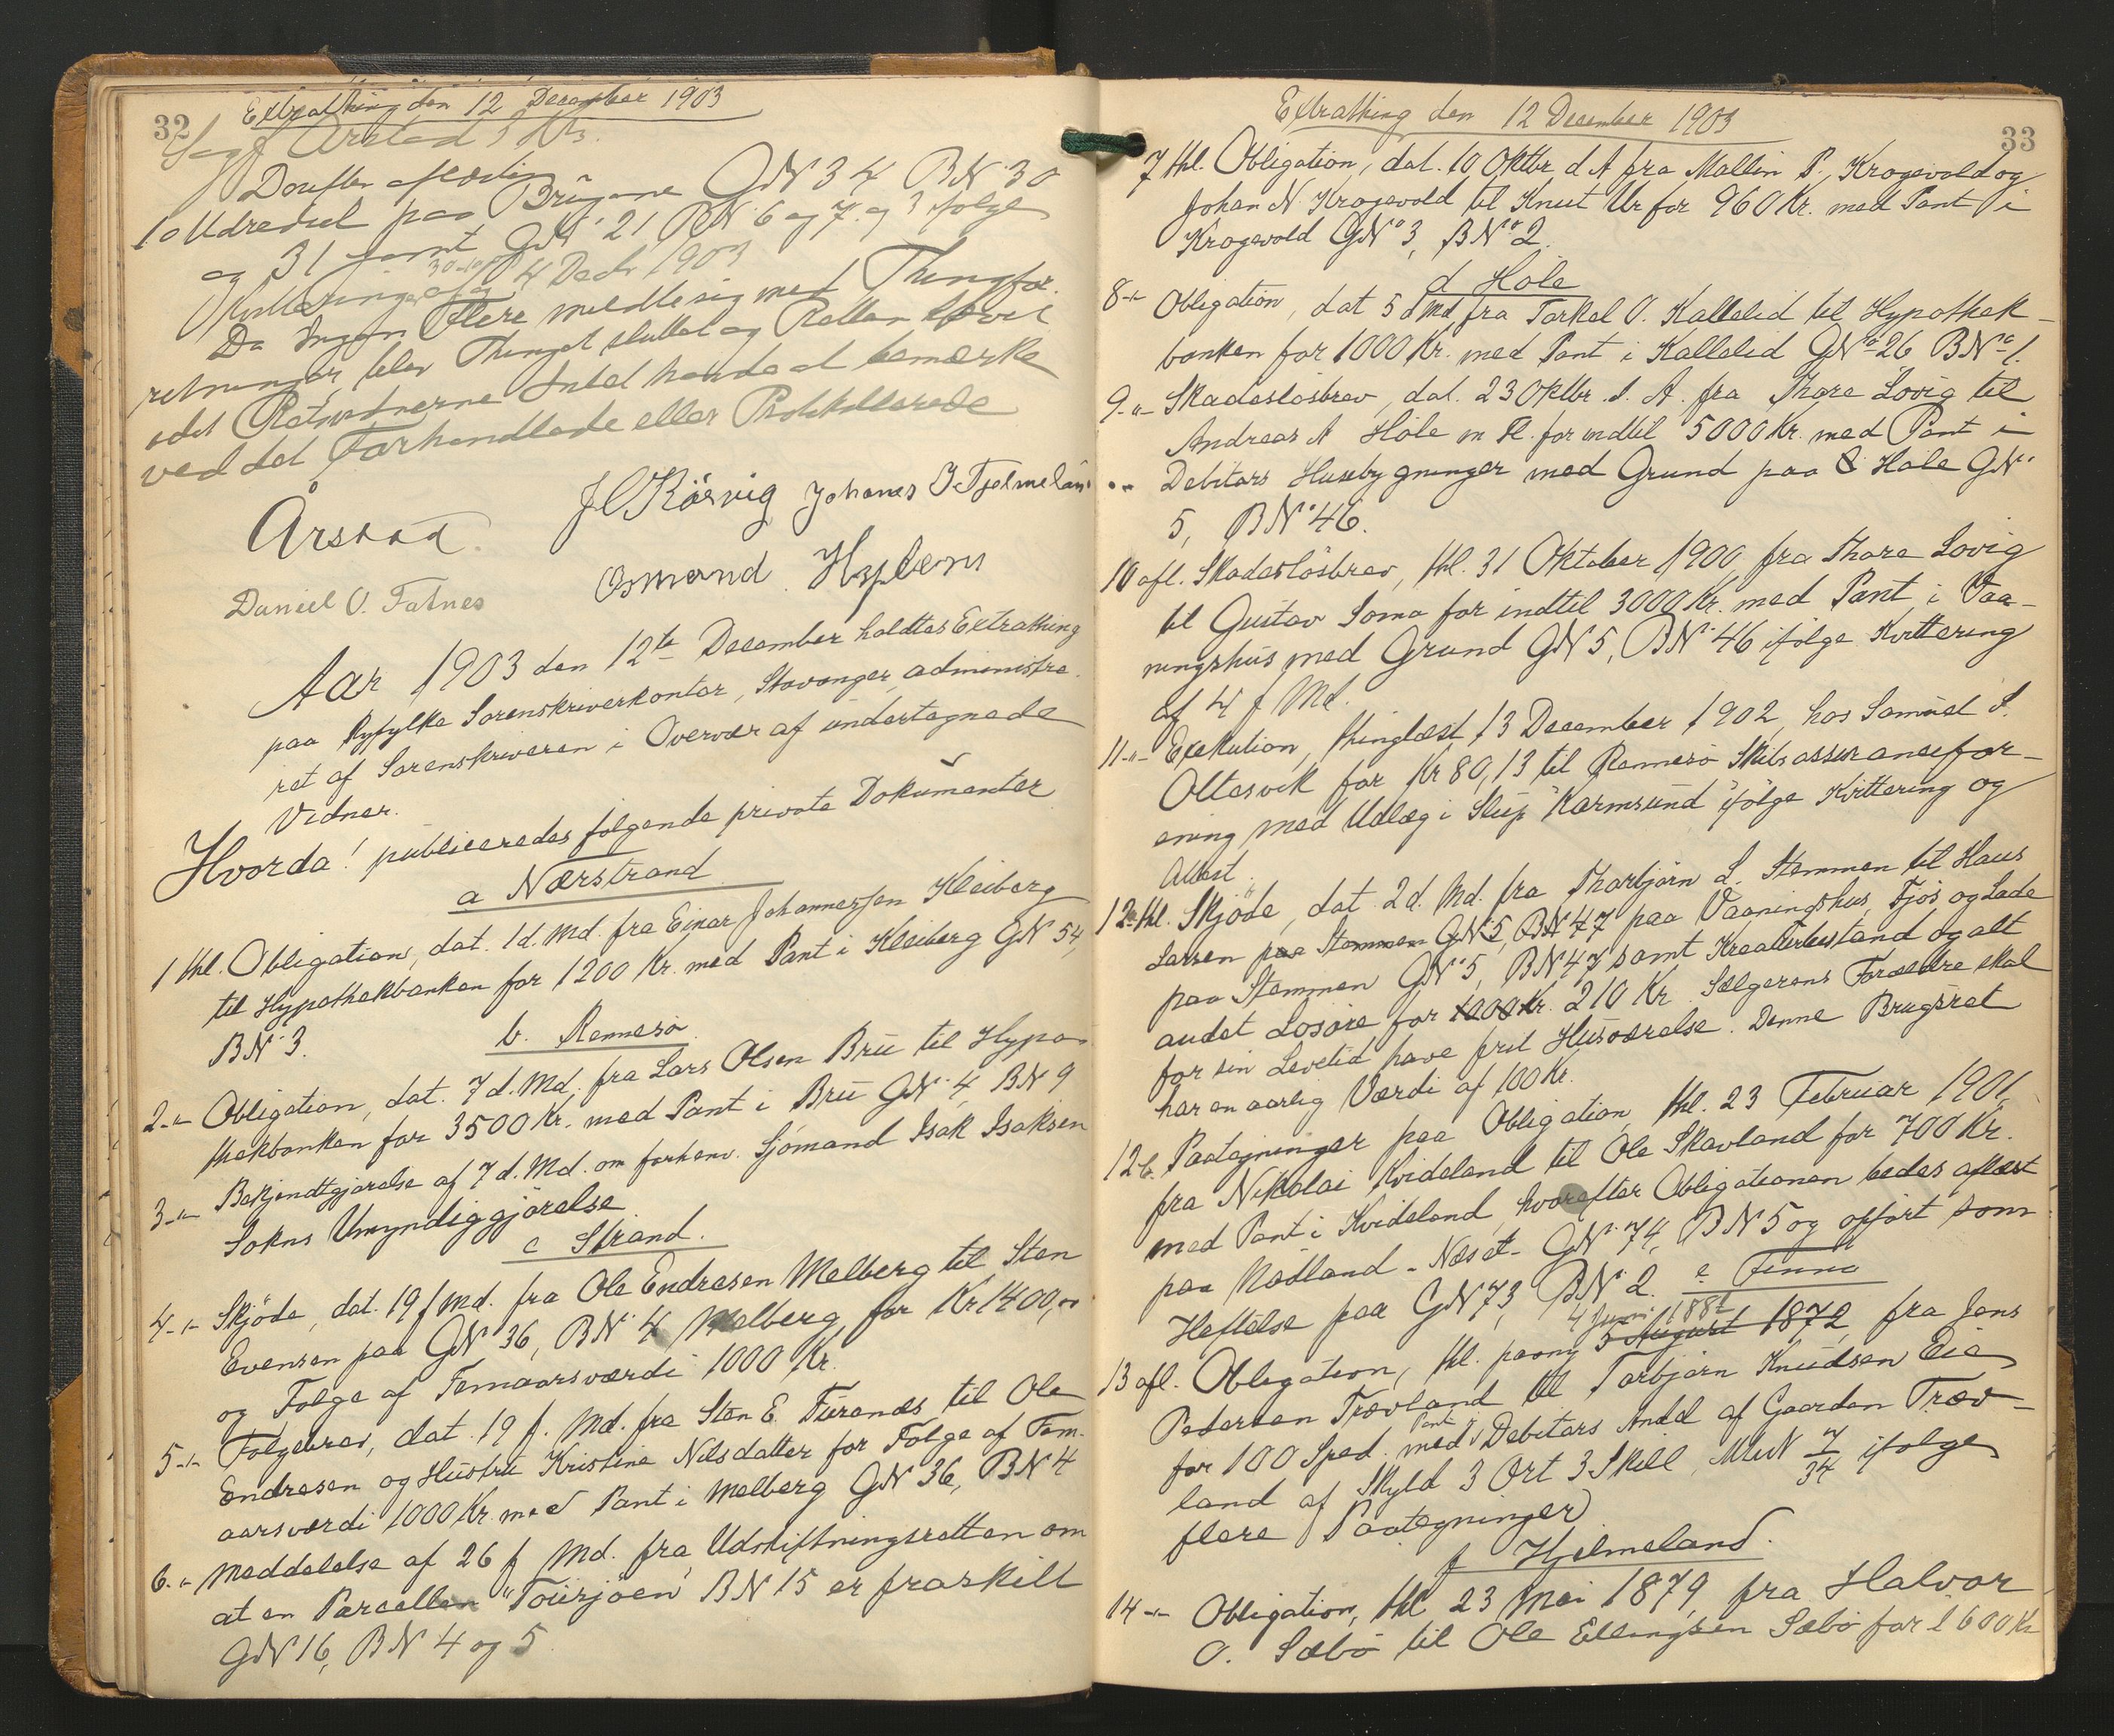 32
Extrathing den 12 December 1903
Årstad
Derefter aflæstes
10 Udredsel paa Brügene GN 34 BN 30
og 31 samt GN 21 BN 6 og 7 og 3 ifølge
Kvitteringer af 4 Decbr 1903
Da Ingen Flere meldte sig med Thingfor-
retninger, blev Thinget sluttet og Retten hævet
idet Retsvidnerne Intet havde at bemærke
ved det Forhandlede eller Protokollerede
Årstad. Johanes B. Fjelmelan
Daniel O. Fatnes Osmund
Aar 1903 den 12te December holdtes Extrathing
paa Ryfylke Sorenskriverkontor, Stavanger, administre-
ret af Sorenskriveren i Overvær af undertegnede
Vidner.
Hvorda! publiceredes følgende private Dokumenter
a Nærstrand
1 thl. Obligation, dat. 1 d. Md. fra Einar Johannessen Kleiberg
til Hypothekbanken for 1200 Kr. med Pant i Kleiberg GN 54,
BN 3.
b. Rennesø
2-"- Obligation, dat. 7 d. Md. fra Lars Olsen Brü til Hypo-
thekbanken for 3500 Kr. med Pant i Brü GN 4, BN 9
3-"- Bekjendtgjørelse af 7 d. Md. om forhenv. Sjömand Isak Isaksen
Sokns Umyndiggjörelse
c Strand.
4-"- Skjöde, dat. 19 f Md. fra Ole Endresen Melberg til Sten
Evensen paa GN 36, BN 4 Melberg for Kr 1400,00
og Folge af Femaarsværdi 1000 Kr.
5-"- Folgebrev, dat. 19 f. Md. fra Sten E. Türenes til Ole
Endresen og Hustru Kristine Nilsdatter for Folge af Fem-
aarsværdi 1000 Kr. med Pant i Melberg GN 36, BN 4
6-"- Meddelelse af 26 f Md. fra Udskiftningsretten om
at en Parcellen "Tourjöen" BN 15 er fraskilt
GN 16, BN 4 og 5
33
Extrathing den 12 December 1903
7 thl. Obligation, dat. 10 Oktbr d A fra Mallin P. Krogevold og
Johan N. Krogevold til Knut Ur for 960 Kr. med Pant i
Krogevold GN° 3, BN° 2.
d Hole
8-"- Obligation, dat 5 d Md fra Torkel O. Kallelid til Hypothek-
banken for 1000 Kr. med Pant i Kallelid GN° 26 BN° 1.
9-"- Skadesløsbrev, dat. 23 Oktbr. d. A. fra Thore Lovig til
Andreas A Hole m fl. for indtil 5000 Kr. med Pant i
Debitors Husebygninger med Grund paa Hole GN°
5, BN° 46.
10 afl. Skadeslösbrev, thl. 31 Oktober 1900 fra Thore Lovig
til Gustav Soma for indtil 3000 Kr. med Pant i Vaa-
ningshus med Grund GN 5, BN 46 ifølge Kvittering
af 4 f Md.
11-"- Exekution, thinglæst 13 December 1902, hos Samuel S.
Oltesvik for Kr 80,13 til Rennesö Skibsassuranceefor-
ening med Udlæg i Slup "Karmsund" ifølge Kvittering og
Attest.
12a thl. Skjöde, dat. 2 d. Md. fra Thorbjørn L. Stemmen til Haus
Larsen paa Stemmen GN 5, BN 47 paa Vaaningshus, Fjös og Lade
paa Stemmen GN° 5, BN 47 samt Kreaturbestand og alt
andet Losøre for 1000 Kr. 210 Kr. Sælgerens Forældre skal
for sin Levetid have frit Husværelse. Denne Brugsret
har en aarlig Værdi af 100 Kr.
12 b. Paategninger paa Obligation, thl. 23 Februar 1901,
fra Nikolai Kvideland til Ole Skavland for 700 Kr.
med Pant i Kvideland, hvorefter Obligationen bedes aflæst
paa Nadland - Næset - GN° 74, BN 5 og opført som
Heftelse paa GN 73, BN 2.
e Finnö
4 Juni 188
13 afl. Obligation, thl. paany 5 August 1872 fra Jens
Pedersen Trævland til Torbjørn Knudsen Eie
for 100 Sped. med Pant i Debitors Andel af Gaarden Træv-
land af Skyld 3 Ort 3 Skill, MaN 7/34 ifølge
flere Paategninger
f Hjelmeland.
14-"- Obligation, thl 23 Mai 1879, fra Halvor
O. Sæbö til Ole Ellingsen Sæbö for 1600 Kr